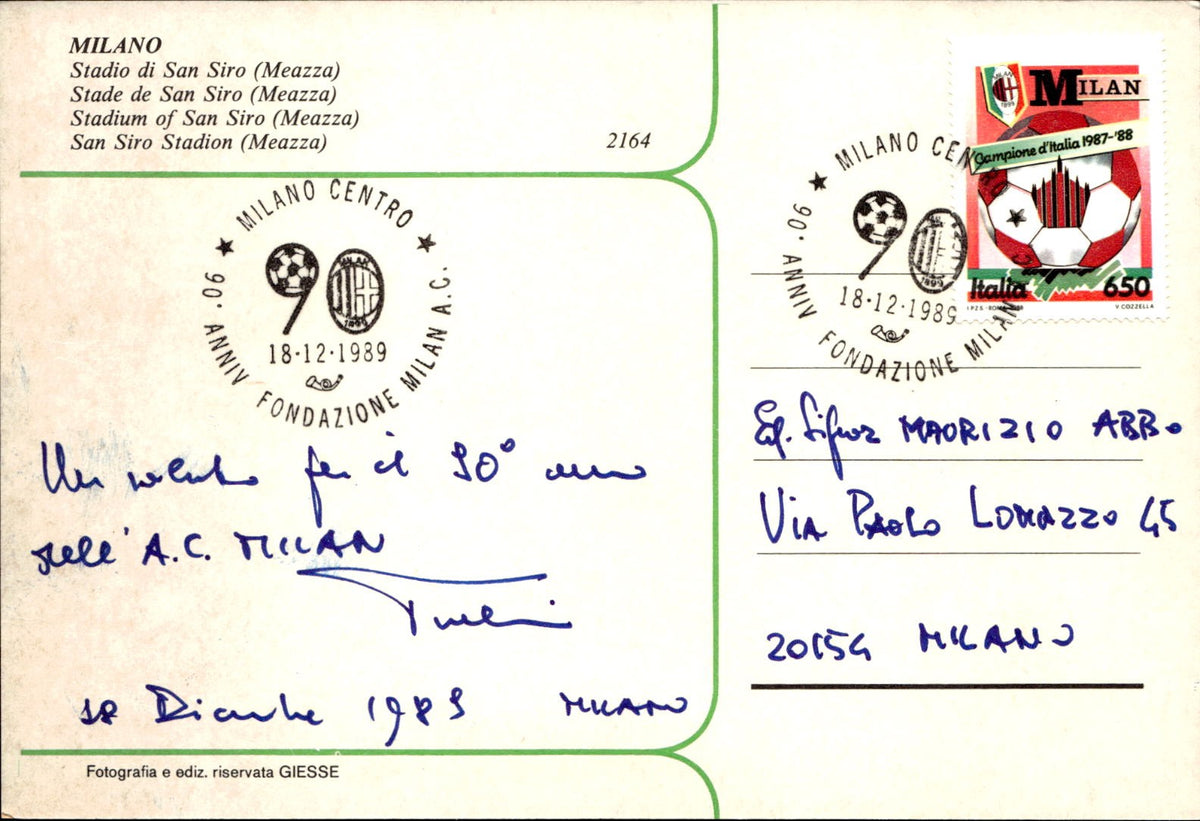 MILANO
Stadio di San Siro (Meazza)
Stade de San Siro (Meazza)
Stadium of San Siro (Meazza)
San Siro Stadion (Meazza)
2164
★ MILANO CENTRO ★
90. ANNIV FONDAZIONE MILAN A.C.
90
1899
18·12·1989
Un saluto per il 90° anno
dell'A.C. MILAN
18 Dicembre 1989 MILANO
Fotografia e ediz. riservata GIESSE
MILAN
1899
MILAN
Campione d'Italia 1987-'88
Italia 650
I.P.Z.S. - ROMA - 1988 V. COZZELLA
★ MILANO CENTRO
90. ANNIV FONDAZIONE MILAN
90
1899
18·12·1989
Eg. Signor MAURIZIO ABBO
VIA PAOLO LOMAZZO 45
20154 MILANO